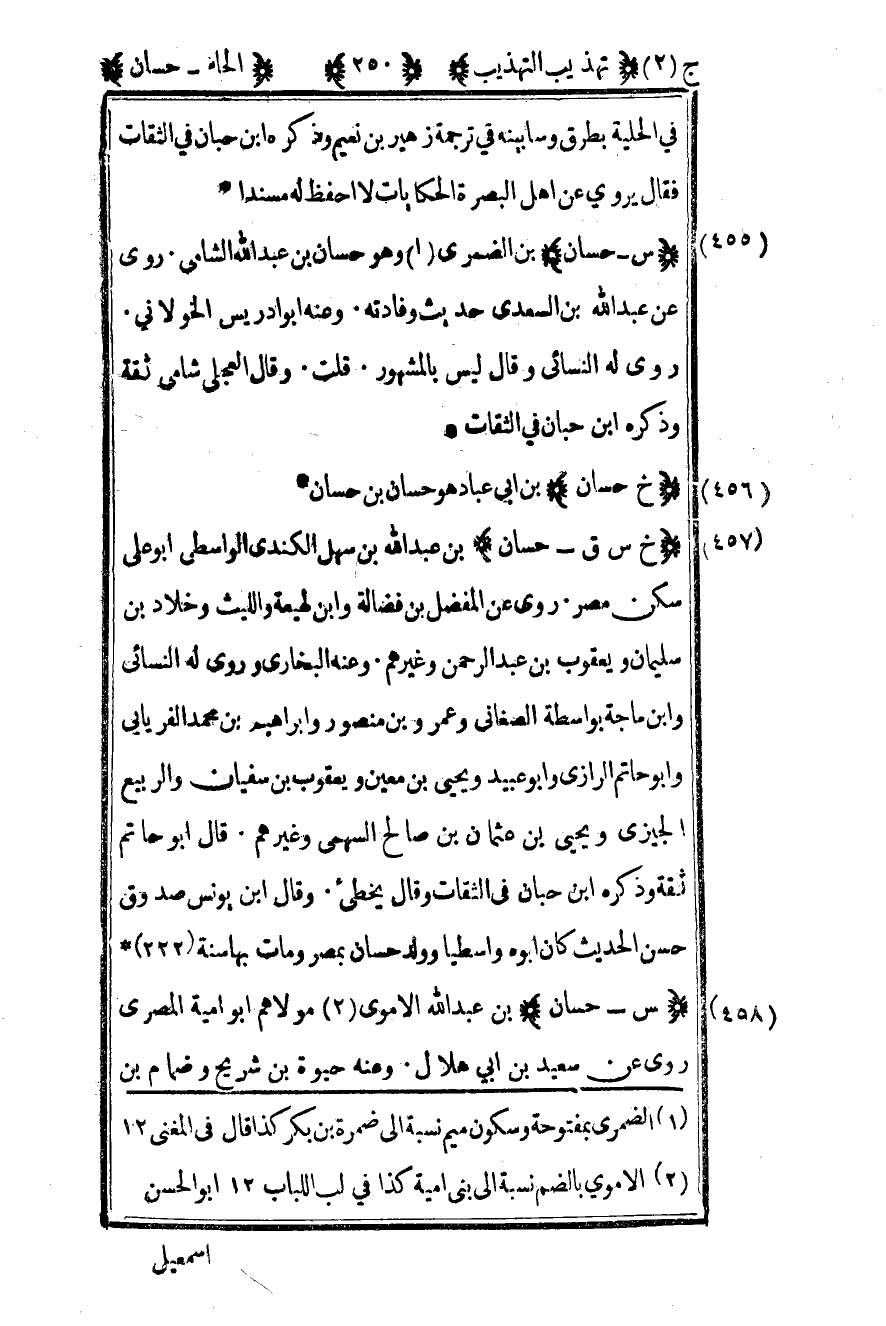 ج (٢) ﴿ تهذيب التهذيب ﴾ ﴿ ٢٥٠ ﴾ ﴿ الحاء - حسان ﴾
في الحلية بطرق وسابينه في ترجمة زهير بن نعيم وذكره ابن حبان في الثقات
فقال يروي عن اهل البصرة الحكايات لا احفظ له مسندا *
(٤٥٥) ﴿ س - حسان ﴾ بن الضمرى (١) وهو حسان بن عبدالله الشامي · روى
عن عبدالله بن السعدى حديث وفادته · وعنه ابوادريس الخولاني ·
روى له النسائى وقال ليس بالمشهور · قلت · وقال العجلى شامى ثقة
وذكره ابن حبان في الثقات *
(٤٥٦) ﴿ خ حسان ﴾ بن ابي عباد هو حسان بن حسان *
(٤٥٧) ﴿ خ س ق - حسان ﴾ بن عبدالله بن سهل الكندى الواسطى ابوعلى
سكن مصر · روى عن المفضل بن فضالة وابن لهيعة والليث وخلاد بن
سليمان ويعقوب بن عبدالرحمن وغيرهم · وعنه البخارى وروى له النسائى
وابن ماجة بواسطة الصغانى وعمرو بن منصور وابراهيم بن محمد الفريابي
وابوحاتم الرازى وابوعبيد ويحيى بن معين ويعقوب بن سفيان والربيع
الجيزى ويحيى بن عثمان بن صالح السهمى وغيرهم · قال ابوحاتم
ثقة وذكره ابن حبان فى الثقات وقال يخطئ · وقال ابن يونس صدوق
حسن الحديث كان ابوه واسطيا وولد حسان بمصر ومات بها سنة (٢٢٢) *
(٤٥٨) ﴿ س - حسان ﴾ بن عبدالله الاموى (٢) مولاهم ابو امية المصرى
روى عن سعيد بن ابي هلال · وعنه حيوة بن شريح وضمام بن
(١) الضمرى بمفتوحة وسكون ميم نسبة الى ضمرة بن بكر كذا قال فى المغنى ١٢
(٢) الاموي بالضم نسبة الى بنى امية كذا في لب اللباب ١٢ ابوالحسن
اسمعيل